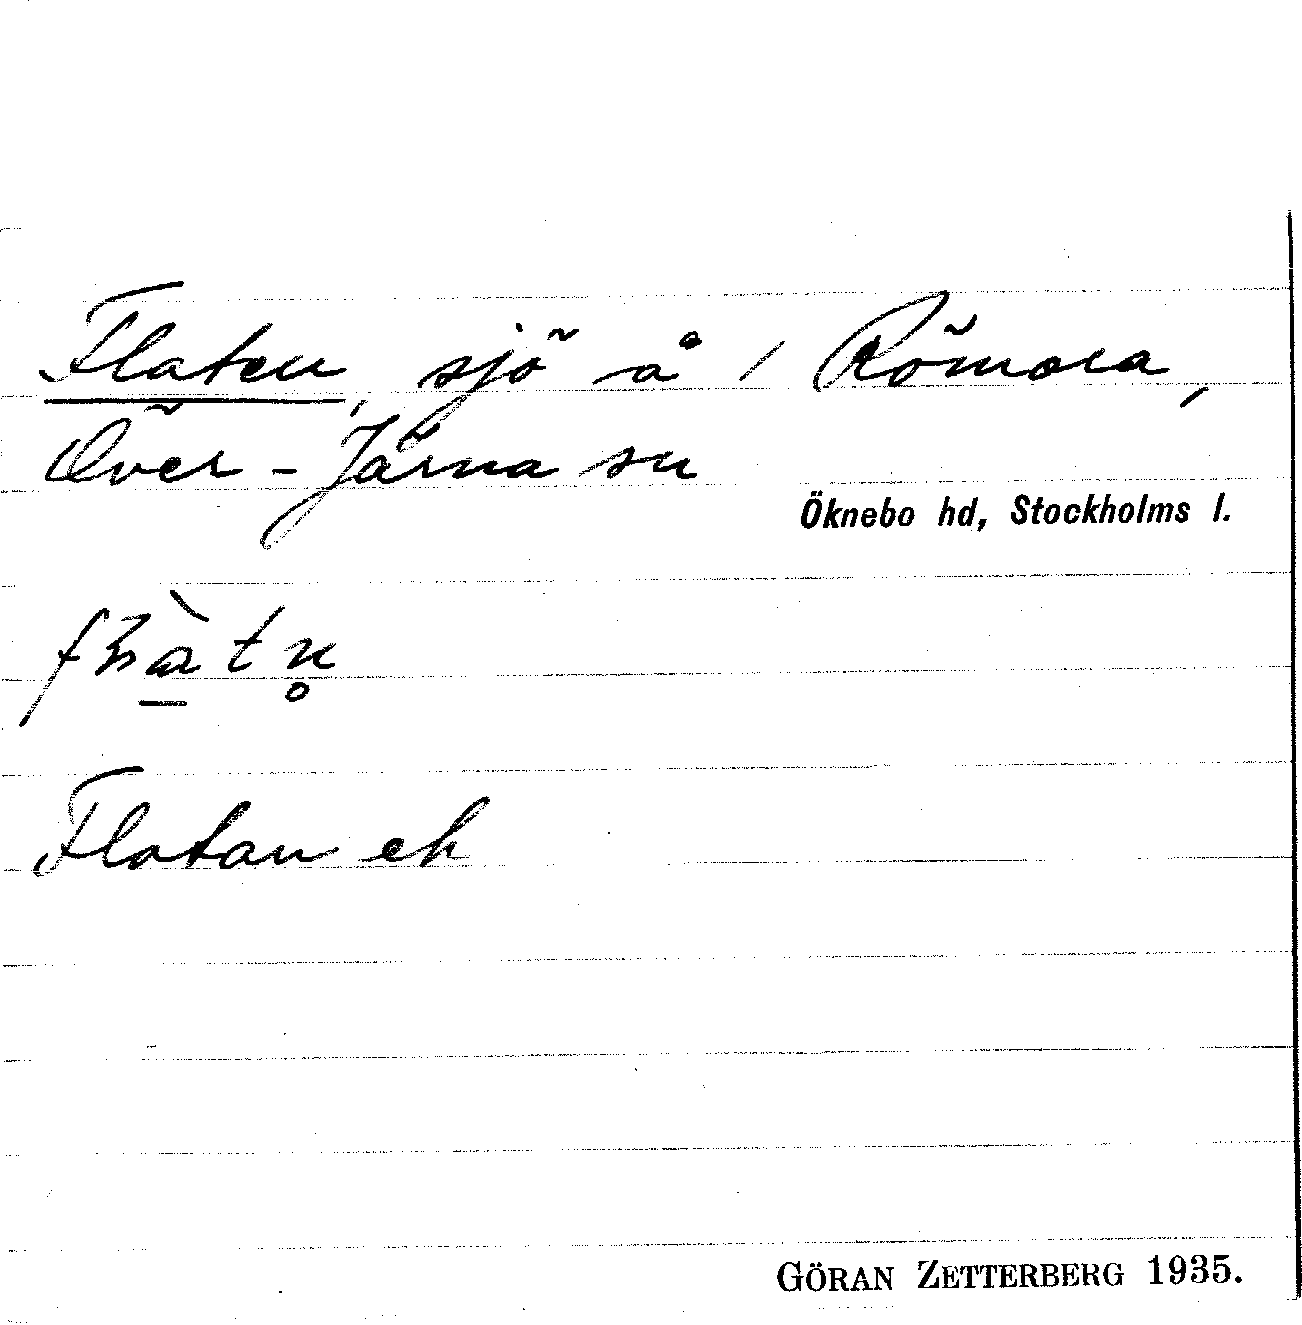 Flaten, sjö å 1 Römora,
Över-Järna sn
Öknebo hd, Stockholms l.
Flatan ek
GÖRAN ZETTERBERG 1935.